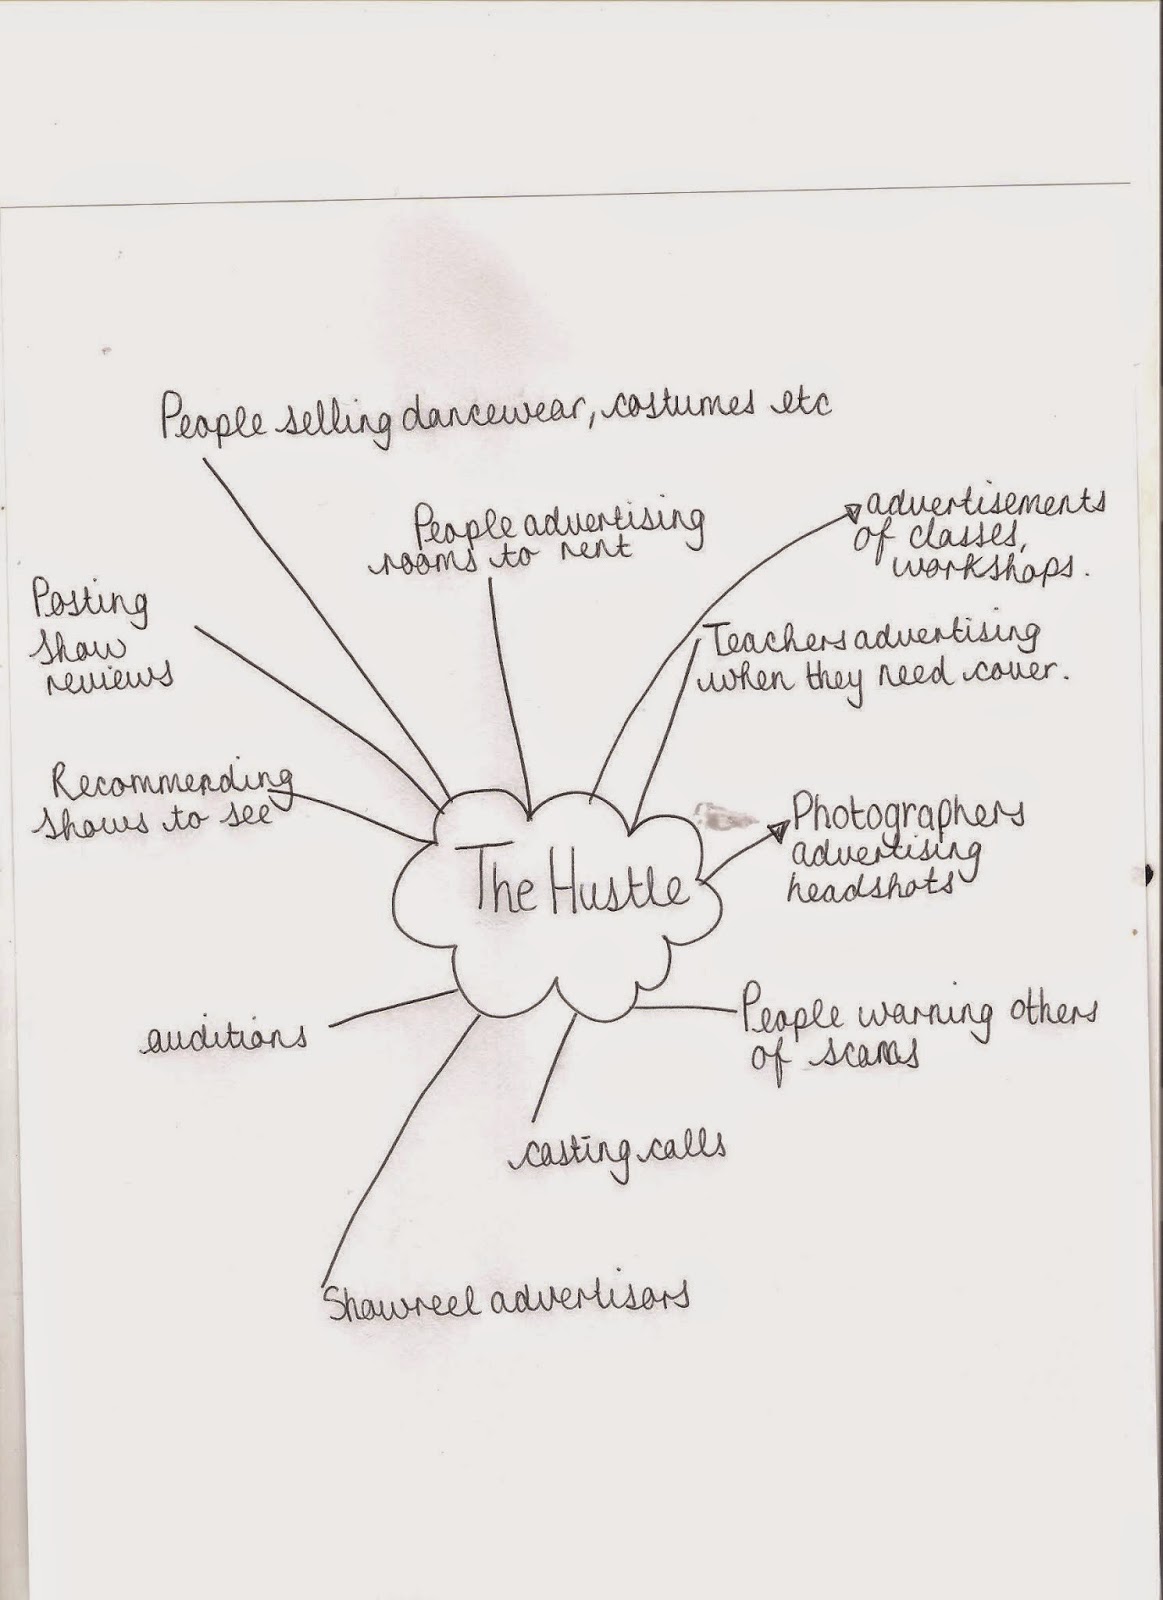 People selling dancewear, costumes etc
People advertising
rooms to rent
advertisements
of classes,
workshops.
Posting
show
reviews
Teachers advertising
when they need cover.
Recommending
shows to see
The Hustle
Photographers
advertising
headshots
auditions
People warning others
of scams
casting calls
Showreel advertisors